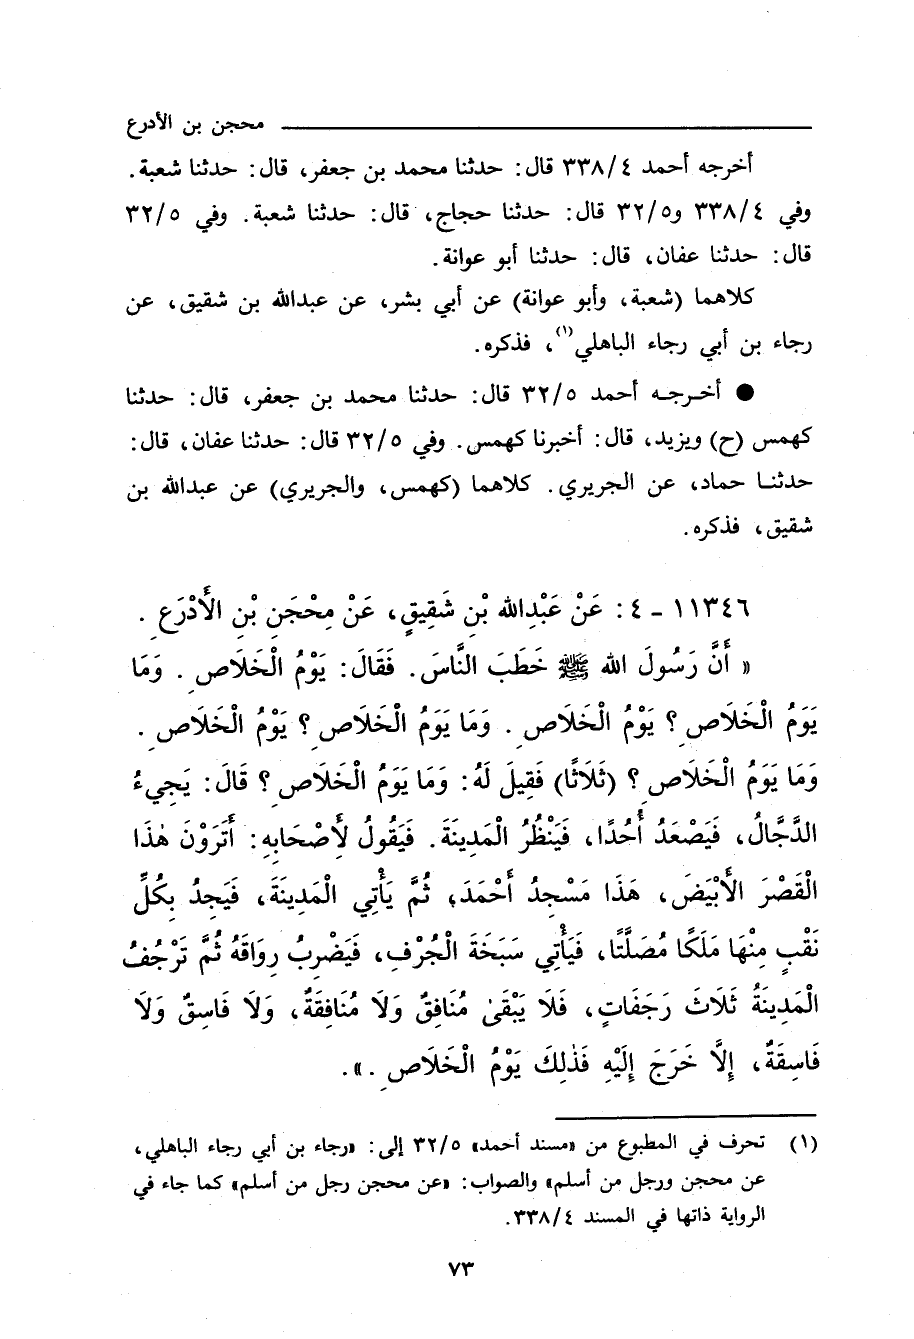 محجن بن الأدرع
أخرجه أحمد ٣٣٨/٤ قال: حدثنا محمد بن جعفر، قال: حدثنا شعبة.
وفي ٣٣٨/٤ و٣٢/٥ قال: حدثنا حجاج، قال: حدثنا شعبة. وفي ٣٢/٥
قال: حدثنا عفان، قال: حدثنا أبو عوانة.
كلاهما (شعبة، وأبو عوانة) عن أبي بشر، عن عبدالله بن شقيق، عن
رجاء بن أبي رجاء الباهلي(١)، فذكره.
● أخرجه أحمد ٣٢/٥ قال: حدثنا محمد بن جعفر، قال: حدثنا
كهمس (ح) ويزيد، قال: أخبرنا كهمس. وفي ٣٢/٥ قال: حدثنا عفان، قال:
حدثنا حماد، عن الجريري. كلاهما (كهمس، والجريري) عن عبدالله بن
شقيق، فذكره.
١١٣٤٦ - ٤: عَنْ عَبْدِالله بْنِ شَقِيقٍ، عَنْ مِحْجَنِ بْنِ الأَدْرَعِ.
« أَنَّ رَسُولَ الله ﷺ خَطَبَ النَّاسَ. فَقَالَ: يَوْمُ الْخَلَاصِ. وَمَا
يَوَمُ الْخَلَاصِ؟ يَوْمُ الْخَلَاصِ. وَمَا يَوَمُ الْخَلَاصِ؟ يَوْمُ الْخَلَاصِ.
وَمَا يَوَمُ الْخَلَاصِ؟ (ثَلَاثًا) فَقِيلَ لَهُ: وَمَا يَوَمُ الْخَلَاصِ؟ قَالَ: يَجِيءُ
الدَّجَّالُ، فَيَصْعَدُ أُحُدًا، فَيَنْظُرُ الْمَدِينَةَ. فَيَقُولُ لأَصْحَابِهِ: أَتَرَوْنَ هٰذَا
الْقَصْرَ الأَبْيَضَ، هَذَا مَسْجِدُ أَحْمَدَ، ثُمَّ يَأْتِي الْمَدِينَةَ، فَيَجِدُ بِكُلِّ
نَقْبٍ مِنْهَا مَلَكًا مُصَلَّتًا، فَيَأْتِي سَبَخَةَ الْجُرْفِ، فَيَضْرِبُ رِوَاقَهُ ثُمَّ تَرْجُفُ
الْمَدِينَةُ ثَلَاثَ رَجَفَاتٍ، فَلَا يَبْقَىٰ مُنَافِقٌ وَلَا مُنَافِقَةٌ، وَلَا فَاسِقٌ وَلَا
فَاسِقَةٌ، إِلَّا خَرَجَ إِلَيْهِ فَذٰلِكَ يَوْمُ الْخَلَاصِ.».
(١) تحرف في المطبوع من «مسند أحمد» ٣٢/٥ إلى: «رجاء بن أبي رجاء الباهلي،
عن محجن ورجل من أسلم» والصواب: «عن محجن رجل من أسلم» كما جاء في
الرواية ذاتها في المسند ٣٣٨/٤.
٧٣